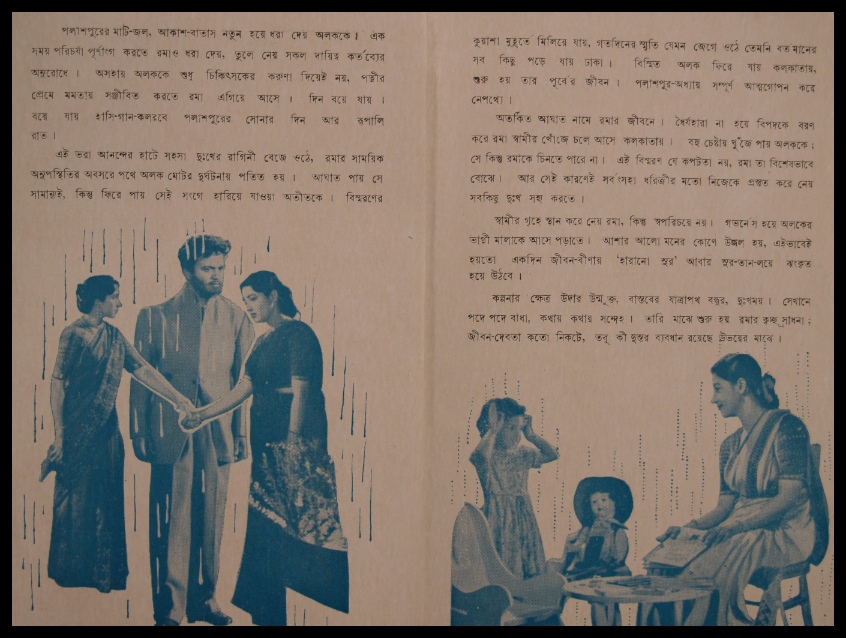 পলাশপুরের মাটি-জল, আকাশ-বাতাস নতুন হয়ে ধরা দেয় অলককে। এক
সময় পরিচর্যা পূর্ণাংগ করতে রমাও ধরা দেয়, তুলে নেয় সকল দায়িত্ব কর্তব্যের
অনুরোধে। অসহায় অলককে শুধু চিকিৎসকের করুণা দিয়েই নয়, পত্নীর
প্রেমে মমতায় সঞ্জীবিত করতে রমা এগিয়ে আসে। দিন বয়ে যায়।
বয়ে যায় হাসি-গান-কলরবে পলাশপুরের সোনার দিন আর রূপালি
রাত।
এই ভরা আনন্দের হাটে সহসা দুঃখের রাগিনী বেজে ওঠে, রমার সাময়িক
অনুপস্থিতির অবসরে পথে অলক মোটর দুর্ঘটনায় পতিত হয়। আঘাত পায় সে
সামান্যই, কিন্তু ফিরে পায় সেই সংগে হারিয়ে যাওয়া অতীতকে। বিস্মরণের
কুয়াশা মুহূর্তে মিলিয়ে যায়, গতদিনের স্মৃতি যেমন জেগে ওঠে তেমনি বর্তমানের
সব কিছু পড়ে যায় ঢাকা। বিস্মিত অলক ফিরে যায় কলকাতায়,
শুরু হয় তার পূর্বের জীবন। পলাশপুর-অধ্যায় সম্পূর্ণ আত্মগোপন করে
নেপথ্যে।
অতর্কিত আঘাত নামে রমার জীবনে। ধৈর্যহারা না হয়ে বিপদকে বরণ
করে রমা স্বামীর খোঁজে চলে আসে কলকাতায়। বহু চেষ্টায় খুঁজে পায় অলককে;
সে কিন্তু রমাকে চিনতে পারে না। এই বিস্মরণ যে কপটতা নয়, রমা তা বিশেষভাবে
বোঝে। আর সেই কারণেই সর্বংসহা ধরিত্রীর মতো নিজেকে প্রস্তুত করে নেয়
সবকিছু দুঃখ সহ্য করতে।
স্বামীর গৃহে স্থান করে নেয় রমা, কিন্তু স্বপরিচয়ে নয়। গভর্নেস হয়ে অলকের
ভাগ্নী মালাকে আসে পড়াতে। আশার আলো মনের কোণে উজ্জ্বল হয়, এইভাবেই
হয়তো একদিন জীবন-বীণায় 'হারানো সুর' আবার সুর-তান-লয়ে ঝংকৃত
হয়ে উঠবে।
কল্পনার ক্ষেত্র উদার উন্মুক্ত, বাস্তবের যাত্রাপথ বন্ধুর, দুঃখময়। সেখানে
পদে পদে বাধা, কথায় কথায় সন্দেহ। তারি মাঝে শুরু হয় রমার কৃচ্ছ্রসাধনা;
জীবন-দেবতা কতো নিকটে, তবু কী দুস্তর ব্যবধান রয়েছে উভয়ের মাঝে।